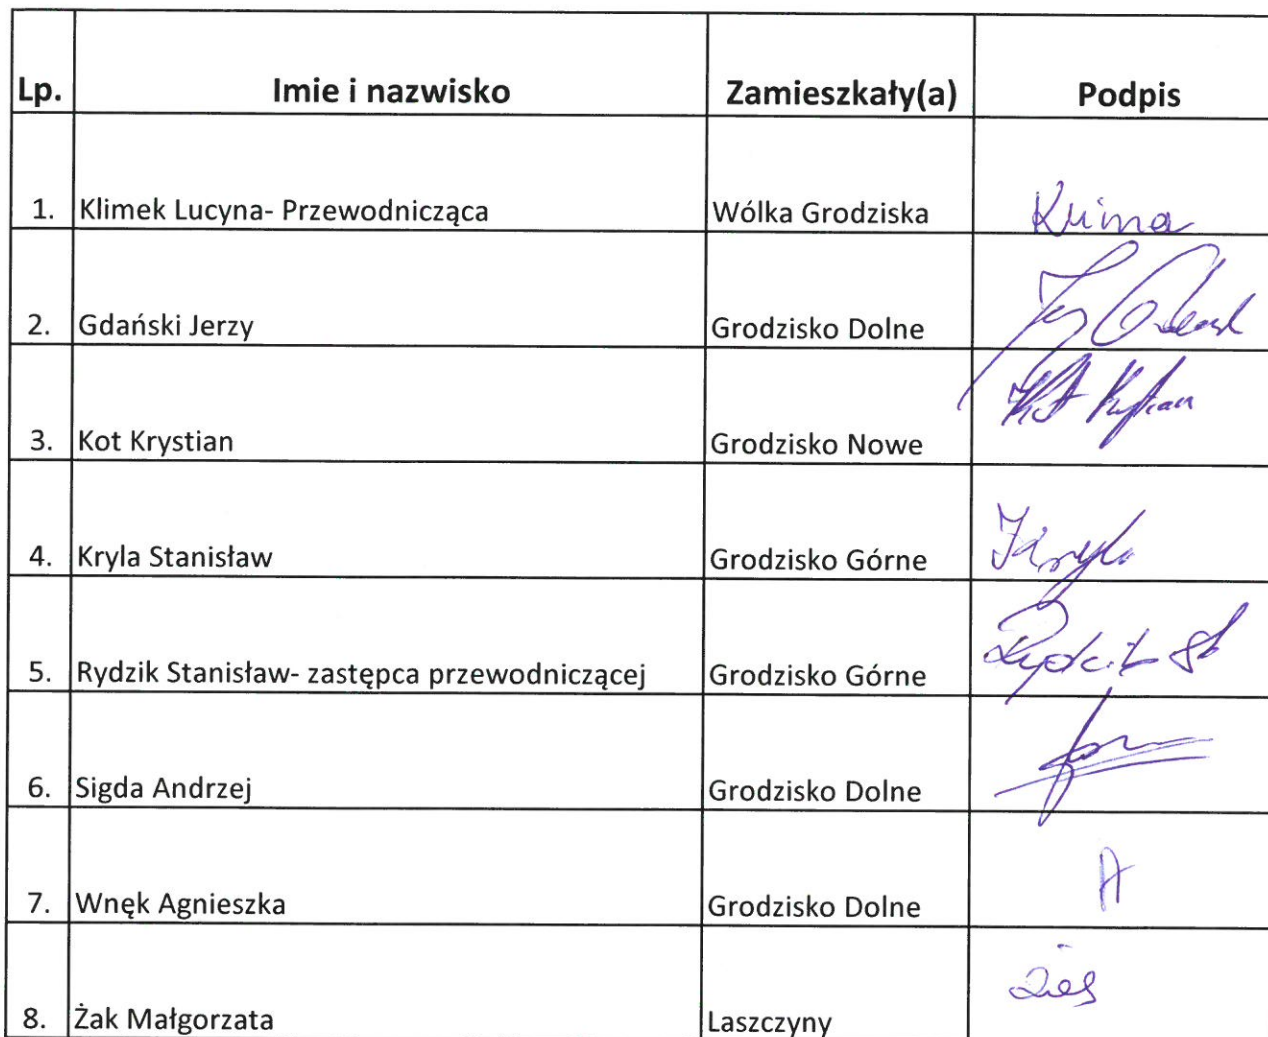 Lp. Imie i nazwisko Zamieszkały(a) Podpis
1. Klimek Lucyna- Przewodnicząca Wólka Grodziska
2. Gdański Jerzy Grodzisko Dolne
3. Kot Krystian Grodzisko Nowe Kot Krystian
4. Kryla Stanisław Grodzisko Górne
5. Rydzik Stanisław- zastępca przewodniczącej Grodzisko Górne Rydzik St
6. Sigda Andrzej Grodzisko Dolne
7. Wnęk Agnieszka Grodzisko Dolne A
8. Żak Małgorzata Laszczyny